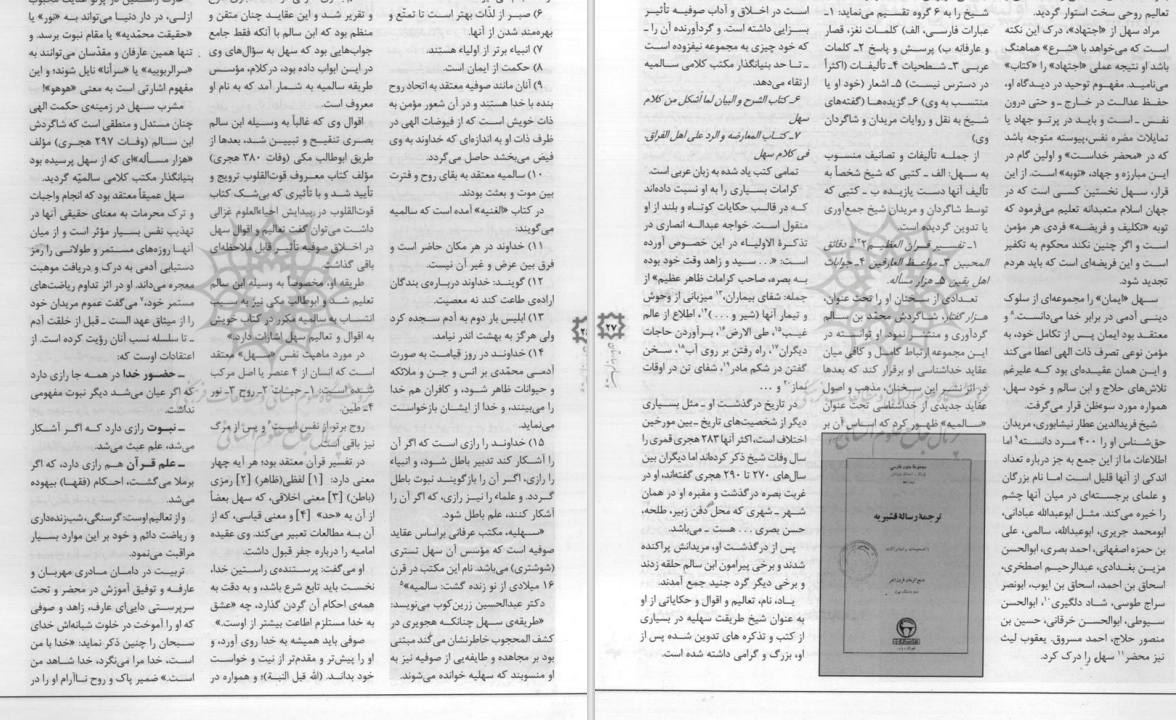 تعالیم روحی سخت استوار گردید.
مراد سهل از «اجتهاد»، درک این نکته
است که می‌خواهد با «شرع» هماهنگ
باشد او نتیجه عملی «اجتهاد» را «کتاب»
می‌نامید. مفهوم توحید در دیدگاه او،
حفظ عدالت در خارج ـ و حتی درون
نفس ـ است و باید در پرتو جهاد یا
تمایلات مضره نفس، پیوسته متوجه باشد
که در «محضر خداست» و اولین گام در
این مبارزه و جهاد، «توبه» است. از این
قرار، سهل نخستین کسی است که در
جهان اسلام متعبدانه تعلیم می‌فرمود که
توبه «تکلیف و فریضه» فردی هر مؤمن
است و اگر چنین نکند محکوم به تکفیر
است و این فریضه‌ای است که باید هردم
تجدید شود.
سهل «ایمان» را مجموعه‌ای از سلوک
دینی آدمی در برابر خدا می‌دانست.۸ و
معتقد بود ایمان پس از تکامل خود، به
مؤمن نوعی تصرف ذات الهی اعطا می‌کند
و این همان عقیده‌ای بود که علیرغم
تلاش‌های حلاج و ابن سالم و خود سهل،
همواره مورد سوءظن قرار می‌گرفت.
شیخ فریدالدین عطار نیشابوری، مریدان
حق‌شناس او را ۴۰۰ مرد دانسته۹ اما
اطلاعات ما از این جمع به جز درباره تعداد
اندکی از آنها قلیل است اما نام بزرگان
و علمای برجسته‌ای در میان آنها چشم
را خیره می‌کند. مثل ابوعبدالله عبادانی،
ابومحمد جریری، ابوعبدالله، سالمی، علی
بن حمزه اصفهانی، احمد بصری، ابوالحسن
مزین بغدادی، عبدالرحیم اصطخری،
اسحاق بن احمد، اسحاق بن ایوب، ابونصر
سراج طوسی، شاد دلگیری۱۰، ابوالحسن
سیوطی، ابوالحسن خرقانی، حسین بن
منصور حلاج، احمد مسروق. یعقوب لیث
نیز محضر۱۱ سهل را درک کرد.
شیخ را به ۶ گروه تقسیم می‌نماید: ۱ـ
عبارات فارسی، الف) کلمات نغز، قصار
و عارفانه ب) پرسش و پاسخ ۲ـ کلمات
عربی ۳ـ شطحیات ۴ـ تألیفات (اکثراً
در دسترس نیست) ۵ـ اشعار (خود او یا
منتسب به وی) ۶ـ گزیده‌ها (گفته‌های
شیخ به نقل و روایات مریدان و شاگردان
وی)
از جمله تألیفات و تصانیف منسوب
به سهل: الف ـ کتبی که شیخ شخصاً به
تألیف آنها دست یازیده ب ـ کتبی که
توسط شاگردان و مریدان شیخ جمع‌آوری
یا تدوین گردیده است.
۱ـ تفسیر قرآن العظیم۱۲ ۲ـ دقائق
المحبین ۳ـ مواعظ العارفین ۴ـ جوابات
اهل یقین ۵ـ هزار مسأله.
تعدادی از سخنان او را تحت عنوان،
هزار گفتار، شاگردش محمد بن سالم
گردآوری و منتشر نمود او توانسته در
این مجموعه ارتباط کامل و کافی میان
عقاید خداشناسی او برقرار کند که بعدها
در اثر نشر این سخنان، مذهب و اصول
عقاید جدیدی از خداشناسی تحت عنوان
«سالمیه» ظهور کرد که اساس آن بر
ترجمهٔ رسالهٔ قشیریه
است در اخلاق و آداب صوفیه تأثیر
بسزایی داشته است. و گردآورنده آن را ـ
که خود چیزی به مجموعه نیفزوده است
ـ تا حد بنیانگذار مکتب کلامی سالمیه
ارتقاء می‌دهد.
۶ـ کتاب الشرح و البیان لما أشکل من کلام
سهل
۷ـ کتاب المعارضه و الرد علی اهل الفراق،
فی کلام سهل
تمامی کتب یاد شده به زبان عربی است.
کرامات بسیاری را به او نسبت داده‌اند
که در قالب حکایات کوتاه و بلند از او
منقول است. خواجه عبدالله انصاری در
تذکرة الاولیاء در این خصوص آورده
است: «... سید و زاهد وقت خود بوده
به بصره، صاحب کرامات ظاهر عظیم» از
جمله: شفای بیماران،۱۳ میزبانی از وحوش
و تیمار آنها (شیر و ...)۱۴، اطلاع از عالم
غیب۱۵، طی الارض۱۶، برآوردن حاجات
دیگران۱۷، راه رفتن بر روی آب۱۸، سخن
گفتن در شکم مادر۱۹، شفای تن در اوقات
نماز۲۰ و ...
در تاریخ درگذشت او ـ مثل بسیاری
دیگر از شخصیت‌های تاریخ ـ بین مورخین
اختلاف است، اکثر آنها ۲۸۳ هجری قمری را
سال وفات شیخ ذکر کرده‌اند اما دیگران بین
سال‌های ۲۷۰ تا ۲۹۰ هجری گفته‌اند، او در
غربت بصره درگذشت و مقبره او در همان
شهر ـ شهری که محل دفن زبیر، طلحه،
حسن بصری ... هست ـ می‌باشد.
پس از درگذشت او، مریدانش پراکنده
شدند و برخی پیرامون ابن سالم حلقه زدند
و برخی دیگر گرد جنید جمع آمدند.
یاد، نام، تعالیم و اقوال و حکایاتی از او
به عنوان شیخ طریقت سهلیه در بسیاری
از کتب و تذکره های تدوین شده پس از
او، بزرگ و گرامی داشته شده است.
۲۷
۶) صبر از لذّات بهتر است تا تمتّع و
بهره‌مند شدن از آنها.
۷) انبیاء برتر از اولیاء هستند.
۸) حکمت از ایمان است.
۹) آنان مانند صوفیه معتقد به اتحاد روح
بنده با خدا هستند و در آن شعور مؤمن به
ذات خویش است که از فیوضات الهی در
ظرف ذات او به اندازه‌ای که خداوند به وی
فیض می‌بخشد حاصل می‌گردد.
۱۰) سالمیه معتقد به بقای روح و فترت
بین موت و بعثت بودند.
در کتاب «الغنیه» آمده است که سالمیه
می‌گویند:
۱۱) خداوند در هر مکان حاضر است و
فرق بین عرض و غیر آن نیست.
۱۲) گویند: خداوند درباره‌ی بندگان
اراده‌ی طاعت کند نه معصیت.
۱۳) ابلیس بار دوم به آدم سجده کرد
ولی هرگز به بهشت اندر نیامد.
۱۴) خداوند در روز قیامت به صورت
آدمی محمّدی بر انس و جن و ملائکه
و حیوانات ظاهر شود، و کافران هم خدا
را می‌بینند، و خدا از ایشان بازخواست
می‌نماید.
۱۵) خداوند را رازی است که اگر آن
را آشکار کند تدبیر باطل شود، و انبیاء
را رازی، اگر آن را بازگویند نبوت باطل
گردد. و علماء را نیز رازی، که اگر آن را
آشکار کنند، علم باطل شود.
«سهلیه، مکتب عرفانی براساس عقاید
صوفیه است که مؤسس آن سهل تستری
(شوشتری) می‌باشد. نام این مکتب در قرن
۱۶ میلادی از نو زنده گشت: سالمیه»۵
دکتر عبدالحسین زرین‌کوب می‌نویسد:
«طریقه‌ی سهل چنانکه هجویری در
کشف المحجوب خاطرنشان می‌کند مبتنی
بود بر مجاهده و طایفه‌یی از صوفیه نیز به
او منسوبند که سهلیه خوانده می‌شوند.
و تقریر شد و این عقاید چنان متقن و
منظم بود که ابن سالم با آنکه فقط جامع
جواب‌هایی بود که سهل به سؤال‌های وی
در این ابواب داده بود، درکلام، مؤسس
طریقه سالمیه به شمار آمد که به نام او
معروف است.
اقوال وی که غالباً به وسیله ابن سالم
بصری تنقیح و تبیین شد، بعدها از
طریق ابوطالب مکی (وفات ۳۸۰ هجری)
مؤلف کتاب معروف قوت‌القلوب ترویج و
تأیید شد و با تأثیری که بی‌شک کتاب
قوت‌القلوب در پیدایش احیاءالعلوم غزالی
داشت می‌توان گفت تعالیم و اقوال سهل
در اخلاق صوفیه تأثیر قابل ملاحظه‌ای
باقی گذاشت.
طریقه او، مخصوصاً به وسیله ابن سالم
تعلیم شد و ابوطالب مکی نیز به سبب
انتساب به سالمیه مکرر در کتاب خویش
به اقوال و تعالیم سهل اشارت دارد.»
در مورد ماهیت نفس «سهل» معتقد
است که انسان از ۴ عنصر یا اصل مرکب
شده است: ۱ـ حیات ۲ـ روح ۳ـ نور
۴ـ طین.
روح برتر از نفس است۶ و پس از مرگ
نیز باقی است.
در تفسیر قرآن معتقد بود؛ هر آیه چهار
معنی دارد: [۱] لفظی(ظاهر) [۲] رمزی
(باطن) [۳] معنی اخلاقی، که سهل بعضاً
از آن به «حد» [۴] و معنی قیاسی، که از
آن به مطالعات تعبیر می‌کند. وی عقیده
امامیه را درباره جفر قبول داشت.
او می‌گفت: پرستنده‌ی راستین خدا،
نخست باید تابع شرع باشد، و به دقت به
همه‌ی احکام آن گردن گذارد، چه «عشق
به خدا مستلزم اطاعت بیشتر از اوست.»
صوفی باید همیشه به خدا روی آورده، و
او را پیش‌تر و مقدم‌تر از نیت و خواست
خود بداند. (الله قبل النیة)؛ و همواره در
ازلی، در دار دنیا می‌تواند به «نور» یا
«حقیقت محمّدیه» یا مقام نبوت برسد. و
تنها همین عارفان و مقدّسان می‌توانند به
«سرالربوبیه» یا «سرأنا» نایل شوند؛ و این
مفهوم اشارتی است به معنی «هوهو»!
مشرب سهل در زمینه‌ی حکمت الهی
چنان مستدل و منطقی است که شاگردش
ابن سالم (وفات ۲۹۷ هجری) مؤلف
«هزار مسأله»ای که از سهل پرسیده بود
بنیانگذار مکتب کلامی سالمیّه گردید.
سهل عمیقاً معتقد بود که انجام واجبات
و ترک محرمات به معنای حقیقی آنها در
تهذیب نفس بسیار مؤثر است و از میان
آنها روزه‌های مستمر و طولانی را رمز
دستیابی آدمی به درک و دریافت موهبت
معجره می‌داند. او در اثر تداوم ریاضت‌های
مستمر خود،۷ می‌گفت عموم مریدان خود
را از میثاق عهد الست ـ قبل از خلقت آدم
ـ تا سلسله نسب آنان رؤیت کرده است. از
اعتقادات اوست که:
ـ حضور خدا در همه جا رازی دارد
که اگر عیان می‌شد دیگر نبوت مفهومی
نداشت.
ـ نبوت رازی دارد که اگر آشکار
می‌شد، علم عبث می‌شد.
ـ علم قرآن هم رازی دارد، که اگر
برملا می‌گشت، احکام (فقها) بیهوده
می‌شد.
و از تعالیم اوست: گرسنگی، شب‌زنده‌داری
و ریاضت دائم و خود بر این موارد بسیار
مراقبت می‌نمود.
تربیت در دامان مادری مهربان و
عارفه و توفیق آموزش در محضر و تحت
سرپرستی دایی‌ای عارف، زاهد و صوفی
که او را آموخت در خلوت شبانه‌اش خدای
سبحان را چنین ذکر نماید: «خدا با من
است، خدا مرا می‌نگرد، خدا شاهد من
است.» ضمیر پاک و روح ناآرام او را در